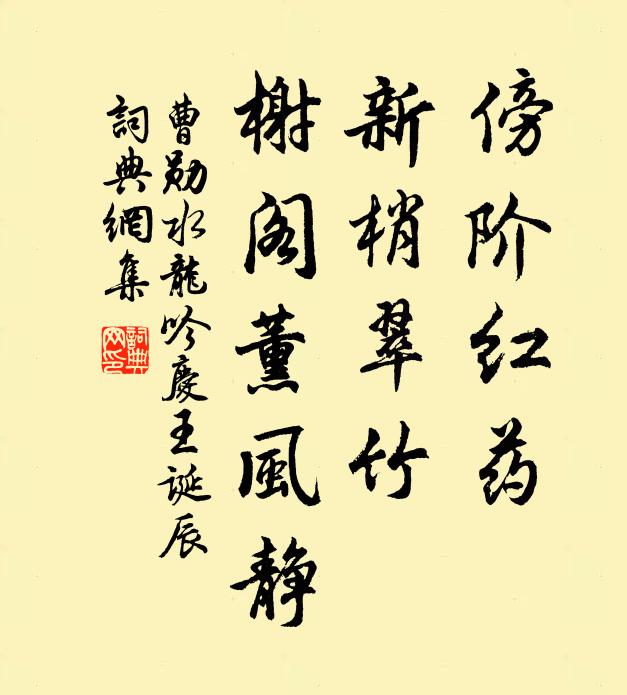 傍阶红药
新梢翠竹
榭阁薰風静
曹勋水龍吟慶王誕辰
詞典網集
詞典網印